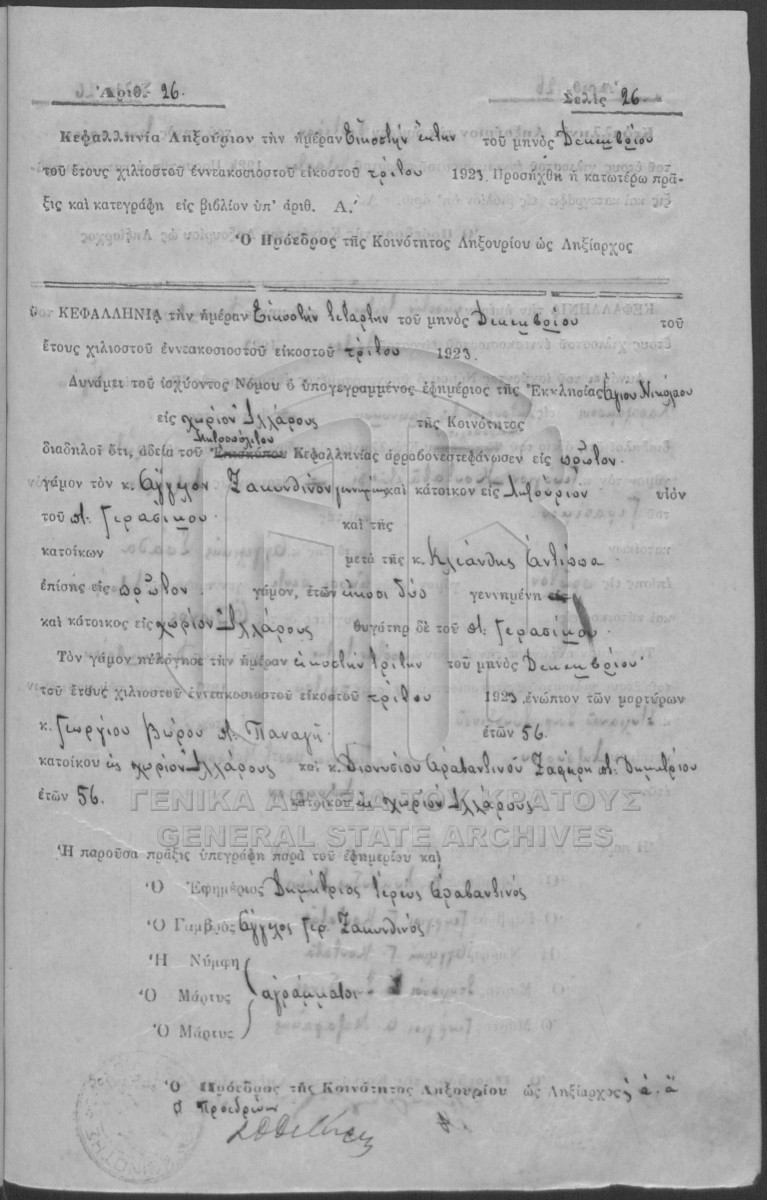 Ἀριθ. 26.
Σελὶς 26.
Κεφαλληνία Ληξούριον τὴν ἡμέραν Εἰκοστὴν ἕκτην τοῦ μηνὸς Δεκεμβρίου
τοῦ ἔτους χιλιοστοῦ ἐννεακοσιοστοῦ εἰκοστοῦ τρίτου 1923. Προσήχθη ἡ κατωτέρω πρᾶ-
ξις καὶ κατεγράφη εἰς βιβλίον ὑπ' ἀριθ. Α.
Ὁ Πρόεδρος τῆς Κοινότητος Ληξουρίου ὡς Ληξίαρχος
ΚΕΦΑΛΛΗΝΙΑ τὴν ἡμέραν Εἰκοστὴν τετάρτην τοῦ μηνὸς Δεκεμβρίου τοῦ
ἔτους χιλιοστοῦ ἐννεακοσιοστοῦ εἰκοστοῦ τρίτου 1923.
Δυνάμει τοῦ ἰσχύοντος Νόμου ὁ ὑπογεγραμμένος ἐφημέριος τῆς Ἐκκλησίας Ἁγίου Νικολάου
εἰς χωρίον τῆς Κοινότητος
Μητροπολίτου
διαδηλοῖ ὅτι, ἀδείᾳ τοῦ Ἐπισκόπου Κεφαλληνίας ἀρραβονεστεφάνωσεν εἰς πρῶτον
γάμον τὸν κ. Ἄγγελον Ζακυνθινὸν καὶ κάτοικον εἰς Ληξούριον υἱὸν
τοῦ Γερασίμου καὶ τῆς
κατοίκων μετὰ τῆς κ. Κλεάνθης Ἀντύπα
ἐπίσης εἰς πρῶτον γάμον, ἐτῶν εἴκοσι δύο γεννημένη εἰς
καὶ κάτοικος εἰς χωρίον θυγάτηρ δὲ τοῦ Γερασίμου
Τὸν γάμον ηὐλόγησε τὴν ἡμέραν εἰκοστὴν τρίτην τοῦ μηνὸς Δεκεμβρίου
τοῦ ἔτους χιλιοστοῦ ἐννεακοσιοστοῦ εἰκοστοῦ τρίτου 1923 ἐνώπιον τῶν μαρτύρων
κ. Γεωργίου Βώρου Παναγῆ ἐτῶν 56.
κατοίκου εἰς χωρίον καὶ κ. Διονυσίου Ἀραβαντινοῦ Δημητρίου
ἐτῶν 56. κατοίκου εἰς χωρίον
ΓΕΝΙΚΑ ΑΡΧΕΙΑ ΤΟΥ ΚΡΑΤΟΥΣ
GENERAL STATE ARCHIVES
Ἡ παροῦσα πρᾶξις ὑπεγράφη παρὰ τοῦ ἐφημερίου καὶ
Ὁ Ἐφημέριος Δημήτριος ἱερεὺς Ἀραβαντινός
Ὁ Γαμβρὸς Ἄγγελος Γερ. Ζακυνθινός
Ἡ Νύμφη
Ὁ Μάρτυς ἀγράμματοι
Ὁ Μάρτυς
Ὁ Πρόεδρος τῆς Κοινότητος Ληξουρίου ὡς Ληξίαρχος
ὁ προεδρεύων